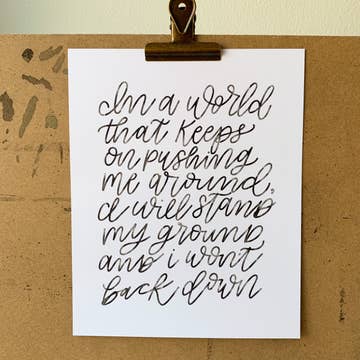 In a world
that keeps
on pushing
me around,
I will stand
my ground
and i wont
back down